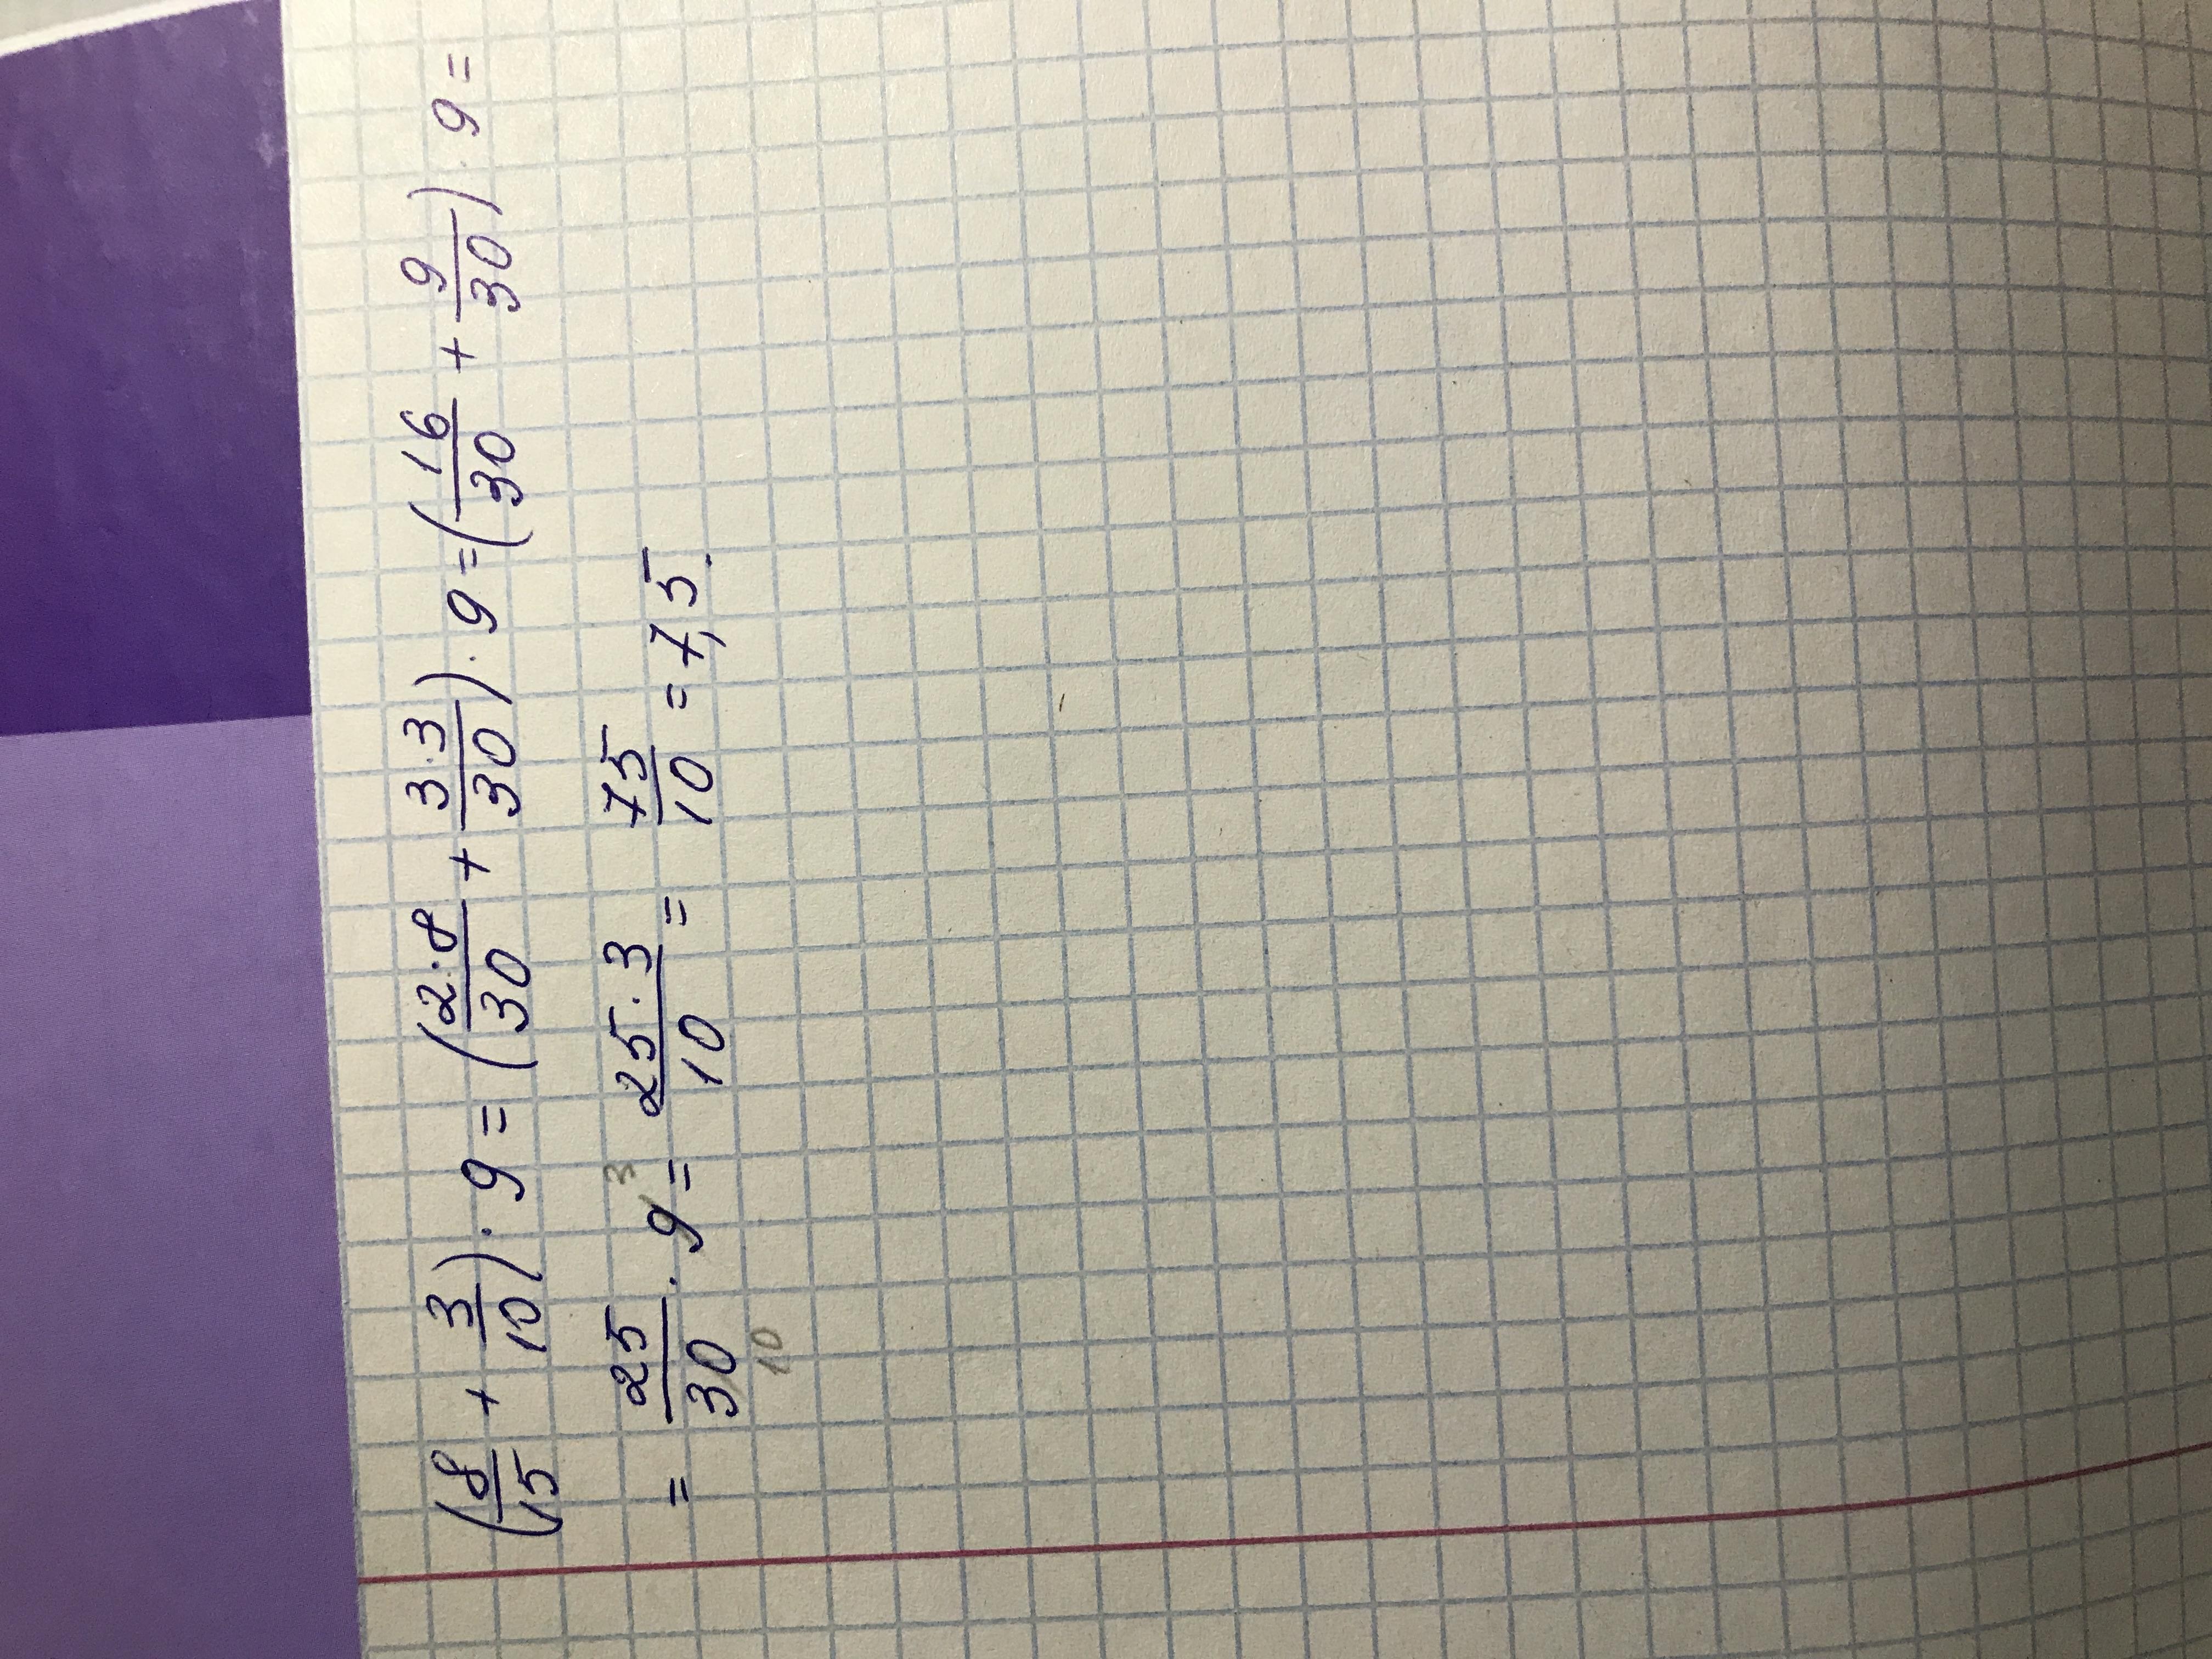 (8/15 + 3/10) · 9 = (2·8/30 + 3·3/30) · 9 = (16/30 + 9/30) · 9 =
= 25/30 · 9 = 25·3/10 = 75/10 = 7,5.
3
10